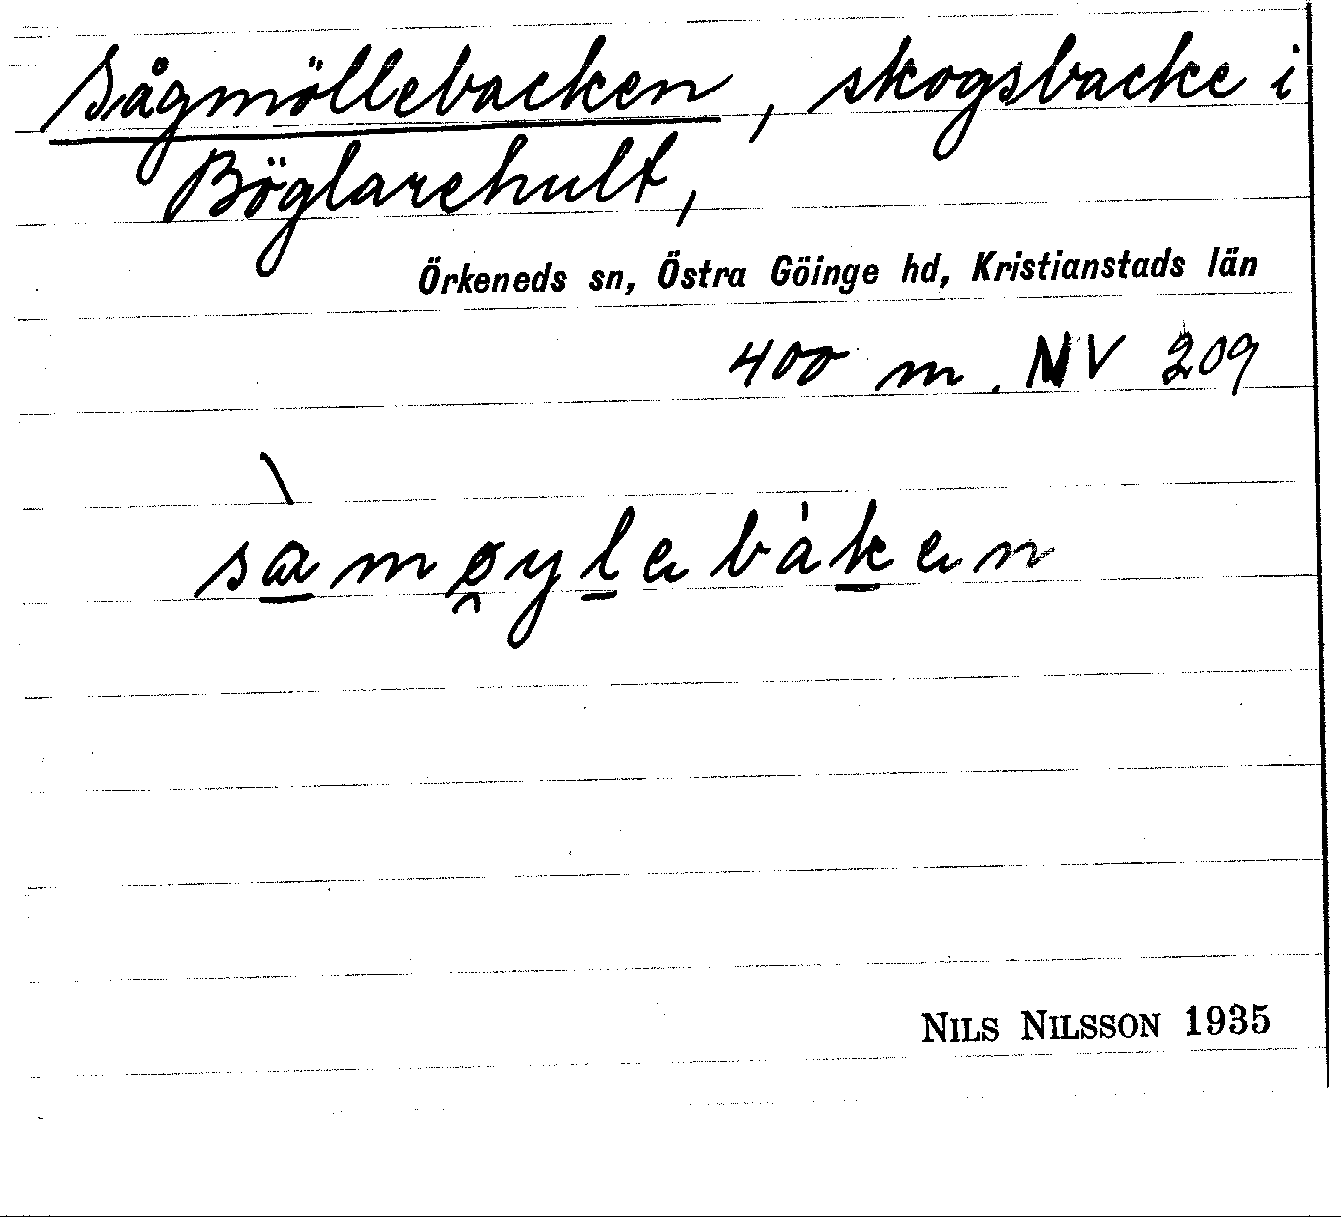 Sågmöllebacken, skogsbacke i
Böglarehult,
Örkeneds sn, Östra Göinge hd, Kristianstads län
400 m. NV 209
NILS NILSSON 1935